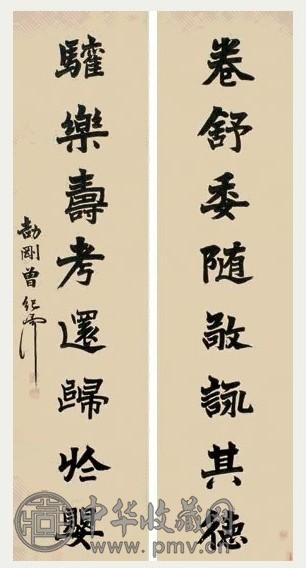 卷舒委隨敬詠其德
驩樂壽考還歸於嬰
劼剛曾紀澤
中华收藏网
www.pmv.cn